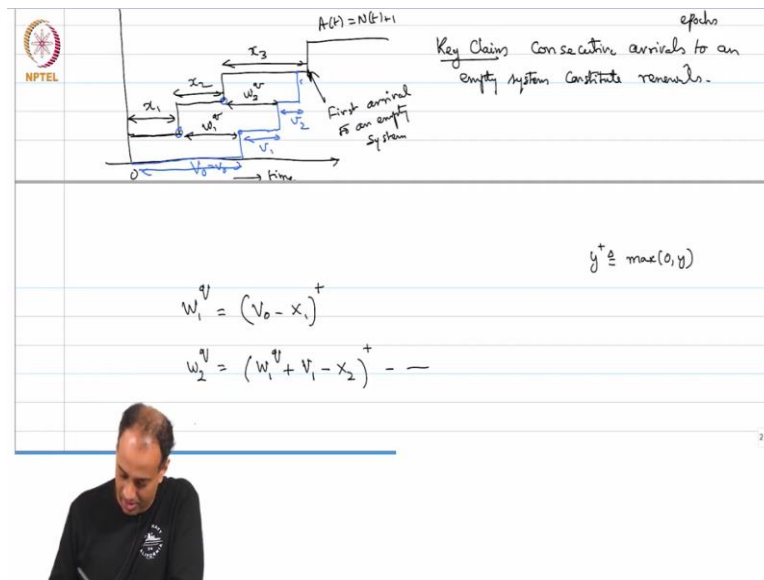 NPTEL
A(t) = N(t)+1
epochs
Key Claim Consecutive arrivals to an
empty system constitute renewals.
x₃
x₂
x₁
W₂^q
W₁^q
V₂
V₁
First arrival
to an empty
system
0
→ time
y⁺ ≜ max(0, y)
W₁^q = (V₀ - X₁)⁺
W₂^q = (W₁^q + V₁ - X₂)⁺ - —
2